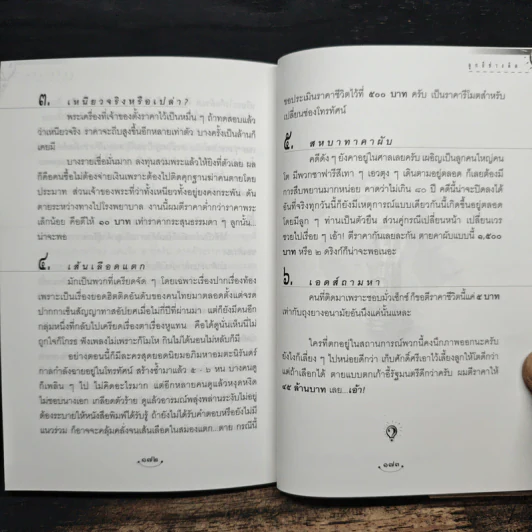 ๓. เหนียวจริงหรือเปล่า?
พระเครื่องที่เจ้าของตั้งราคาไว้เป็นหมื่น ๆ ถ้าทดสอบแล้ว
ว่าเหนียวจริง ราคาจะถีบสูงขึ้นอีกหลายเท่าตัว บางครั้งเป็นล้านก็
เคยมี
บางรายเชื่อมั่นมาก ลงทุนสวมพระแล้วให้ยิงที่ตัวเลย ผล
ก็คือคนซื้อไม่ต้องจ่ายเงินเพราะต้องไปติดคุกฐานฆ่าคนตายโดย
ประมาท ส่วนเจ้าของพระที่ว่าทั้งเหนียวทั้งอยู่ยงคงกระพัน ดัน
ตายระหว่างทางไปโรงพยาบาล งานนี้ผมตีราคาต่ำกว่าราคาพระ
เล็กน้อย คือตีให้ ๑๐ บาท เท่าราคากระสุนธรรมดา ๆ ลูกนั้น...
น่าจะพอ
๔. เส้นเลือดแตก
มักเป็นพวกที่เครียดจัด ๆ โดยเฉพาะเรื่องปากเรื่องท้อง
เพราะเป็นเรื่องยอดฮิตติดอันดับของคนไทยมาตลอดตั้งแต่จรด
ปากกาเซ็นสัญญาทาสอัปยศเมื่อไม่กี่ปีที่ผ่านมา แต่ก็ยังมีคนอีก
กลุ่มหนึ่งที่กลับไปเครียดเรื่องตาเรื่องหูแทน คือได้ดูนั่นเห็นนี่ไม่
ถูกใจก็โกรธ ฟังเพลงไม่เพราะก็โมโห กินไม่ได้นอนไม่หลับก็มี
อย่างตอนนี้ก็มีละครสุดยอดนิยมอภิมหาอมตะนิรันดร์
กาลกำลังฉายอยู่ในโทรทัศน์ สร้างซ้ำมาแล้ว ๕ - ๖ หน บางคนดู
ก็เพลิน ๆ ไป ไม่คิดอะไรมาก แต่อีกหลายคนดูแล้วหงุดหงิด
ไม่ชอบนางเอก เกลียดตัวร้าย ดูแล้วอารมณ์พลุ่งพล่านระงับไม่อยู่
ต้องระบายให้หนังสือพิมพ์ได้รับรู้ ถ้ายังไม่ได้รับคำตอบหรือยังไม่มี
แนวร่วม ก็อาจจะคลุ้มคลั่งจนเส้นเลือดในสมองแตก...ตาย กรณีนี้
๑๗๒
ขอประเมินราคาชีวิตไว้ที่ ๕๐๐ บาท ครับ เป็นราคารีโมตสำหรับ
เปลี่ยนช่องโทรทัศน์
๕. สหบาทาคาผับ
คดีดัง ๆ ยังคาอยู่ในศาลเลยครับ เผอิญเป็นลูกคนใหญ่คน
โต มีพวกซาฟารีสีเทา ๆ เอวตุง ๆ เดินตามอยู่ตลอด ก็เลยต้องมี
การสืบพยานมากหน่อย คาดว่าไม่เกิน ๘๐ ปี คดีนี้น่าจะปิดลงได้
อันที่จริงทุกวันนี้ก็ยังมีเหตุการณ์แบบเดียวกันนี้เกิดขึ้นอยู่ตลอด
โดยมีลูก ๆ ท่านเป็นตัวยืน ส่วนคู่กรณีเปลี่ยนหน้า เปลี่ยนเวร
รวยไปเรื่อย ๆ เอ้า! ตีราคากันเลยละกัน ตายคาผับแบบนี้ ๑,๕๐๐
บาท หรือ ๒ ดริงก์ก็น่าจะพอเนอะ
๖. เอดส์ถามหา
คนที่ติดมาเพราะชอบมั่วเซ็กซ์ ก็ขอตีราคาชีวิตนี้แค่ ๕ บาท
เท่ากับถุงยางอนามัยอันนึงแค่นั้นแหละ
ใครที่ตกอยู่ในสถานการณ์พวกนี้คงนึกภาพออกนะครับ
ยังไงก็เลี่ยง ๆ ไปหน่อยดีกว่า เก็บศักดิ์ศรีเอาไว้เลี้ยงลูกให้โตดีกว่า
แต่ถ้าเลือกได้ ตายแบบตกเก้าอี้รัฐมนตรีดีกว่าครับ ผมตีราคาให้
๔๕ ล้านบาท เลย...เอ้า!
๑๗๓